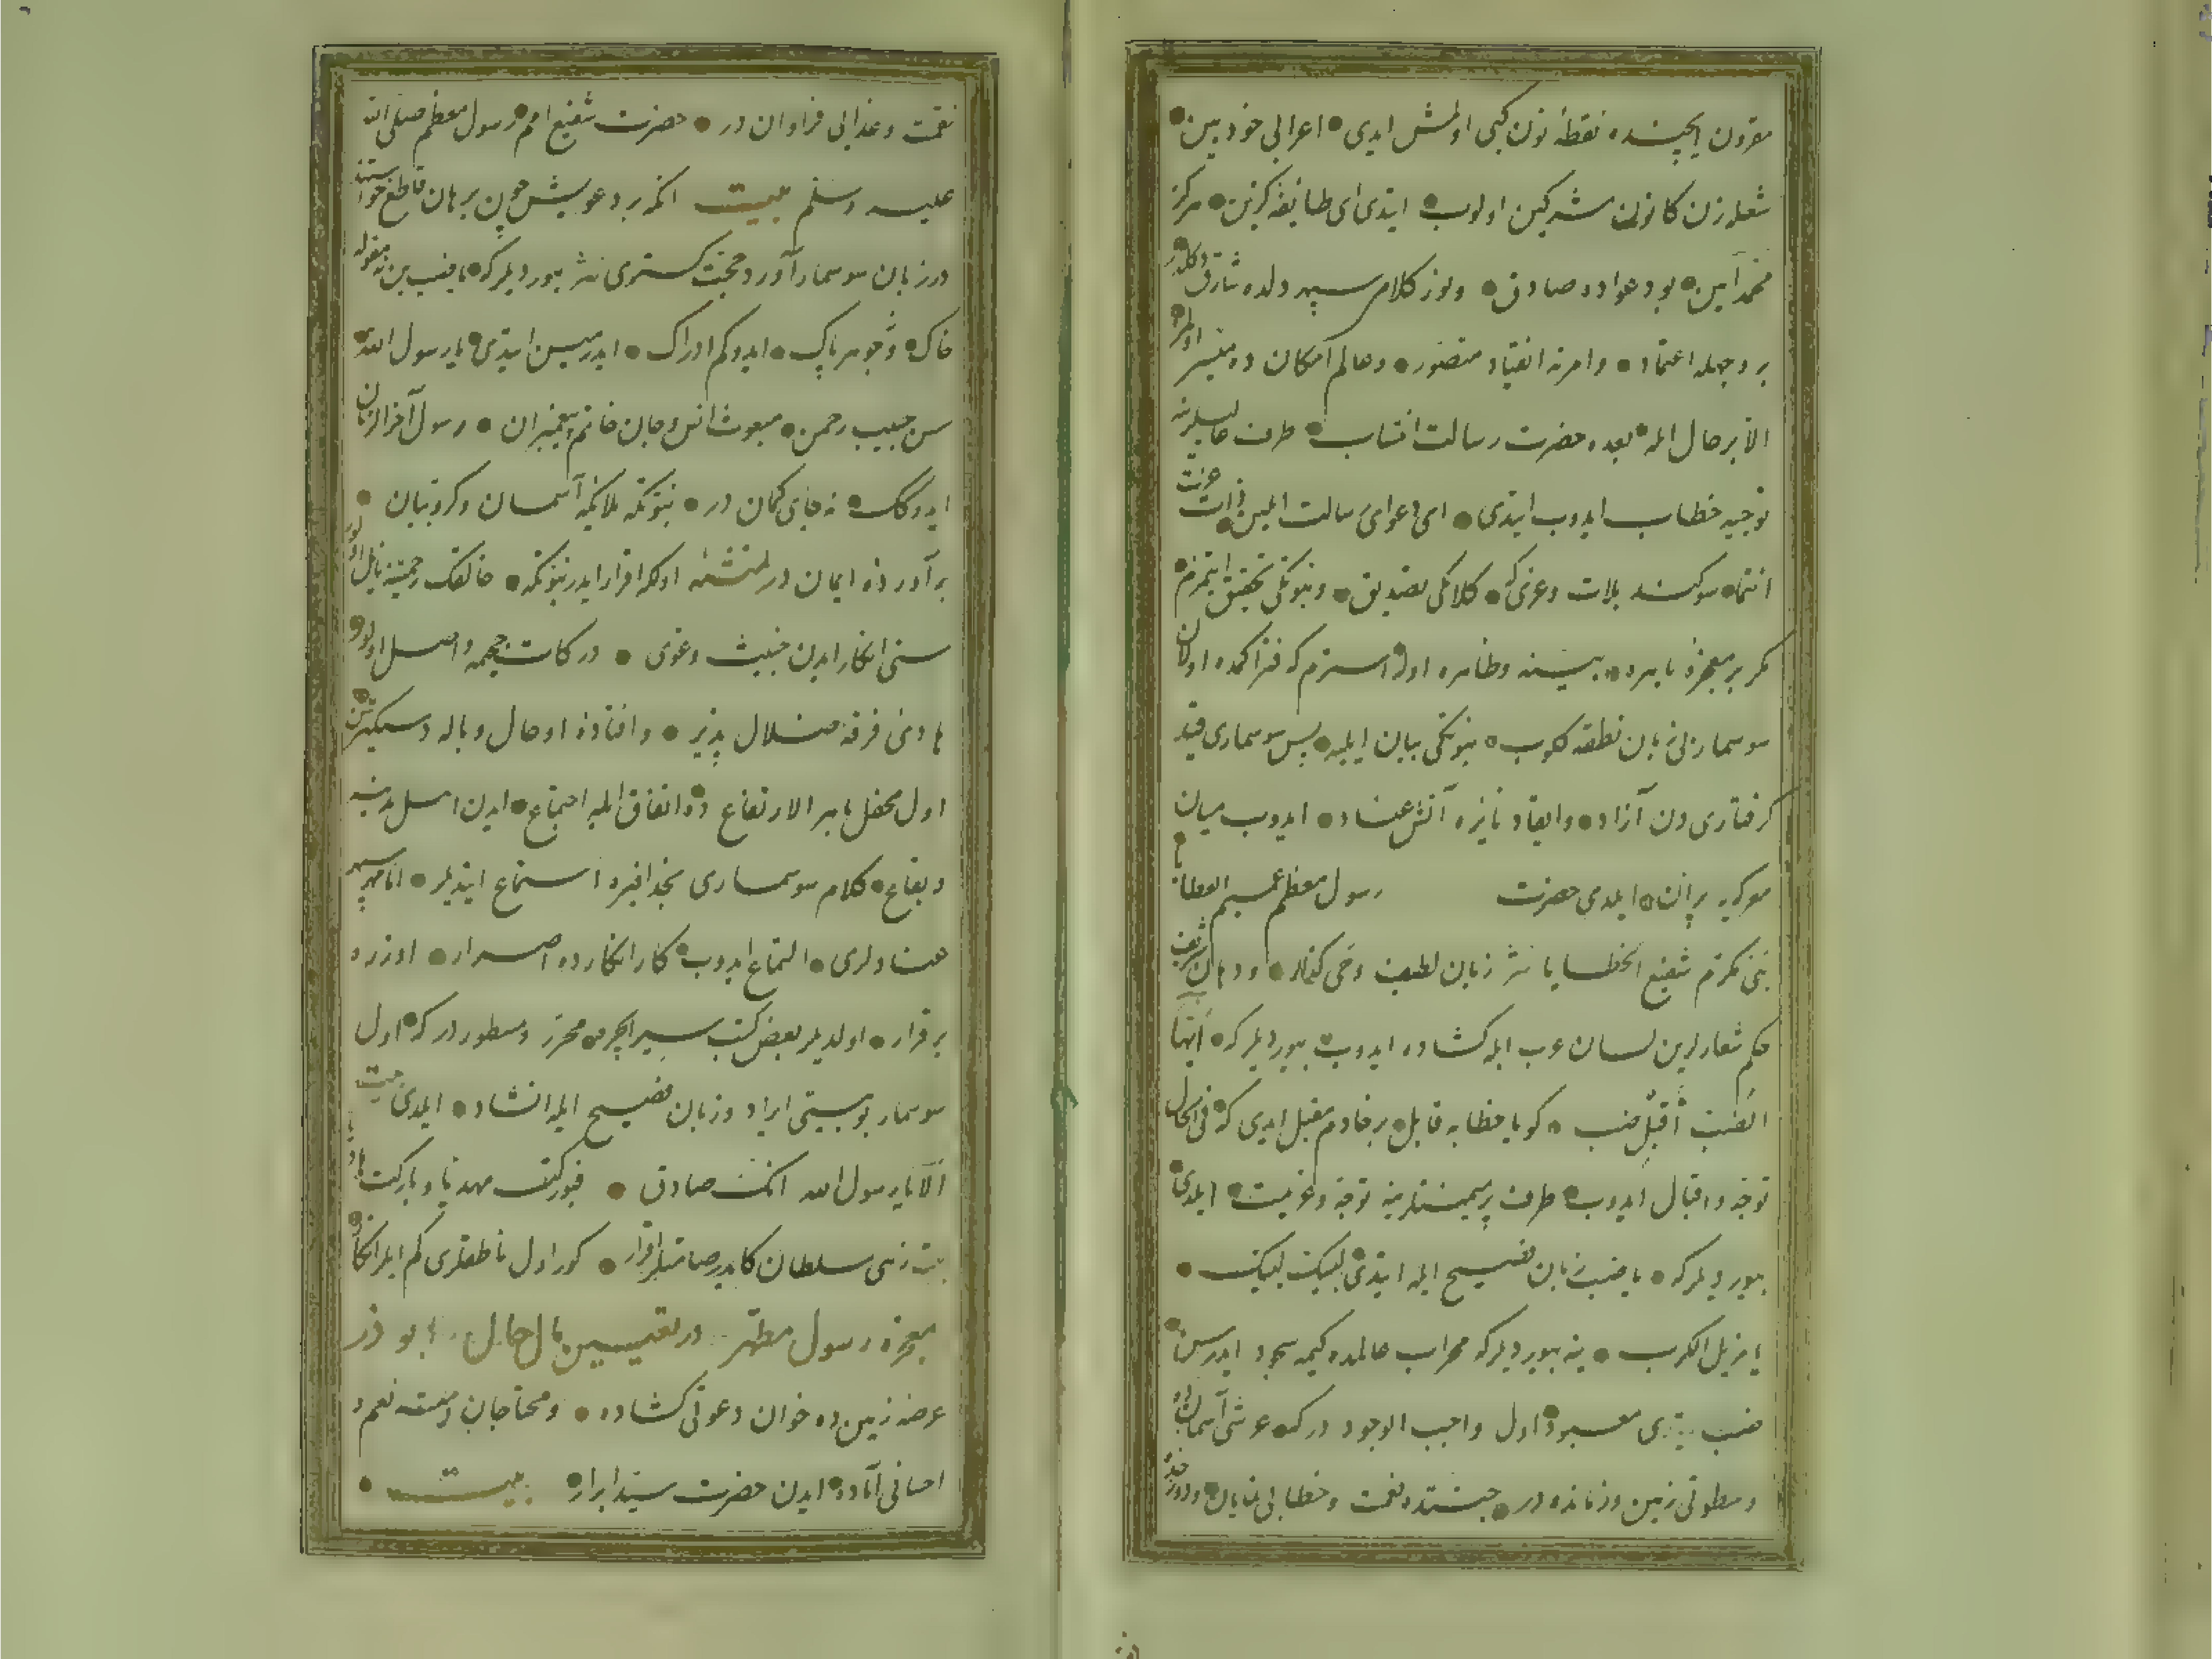 مقرون ایچنده نقطهٔ نون کبی اولمش ایدی اعرابی خود بین
شعله زن کانون مشرکین اولوب ایتدی ای طایفهٔ کزین مرکز
محمد امین بو دعواده صادق ونور کلام سپهر دلده شارق دکلدر
بر وجهله اعتماد وامرنه انقیاد متصور وعالم امکان ده میسر اولمز
الا بر حال ایله بعده حضرت رسالت انتساب طرف عالیلرینه
توجیه خطاب ایدوب ایتدی ای دعوای رسالت ایلین ذات عزت
انتما سوکند بلات وعزی که کلامکی تصدیق ونبوتکی تحقیق ایتمزم
مکر بر معجزهٔ باهره بینه وظاهره اولور استرم که فتراکمده اولان
سوسمار بی زبان نطقه کلوب نبوتکی بیان ایلیه پس سوسماری قید
کرفتاری دن آزاد وایقاد نایره آتش عناد ایدوب میان
معرکه یه پران ایلدی حضرت رسول معظم عمیم العطایا
نبی مکرم شفیع الخطایا نثر زبان لطیف وحی کفتار ودهان شریف
حکم شعارلرین لسان عرب ایله کشاده ایدوب بیوردیلر که ایها
الضب اقبل ضب کویا خطابه قابل بر خادم مقبل ایدی که فی الحال
توجه واقبال ایدوب طرف پرمیمنتلرینه توجه وعزیمت ایلدی
بیوردیلر که یا ضب زبان فصیح ایله ایتدی لبیک لبیک
یا مزیل الکرب ینه بیوردیلر که محراب عالمده کیمه سجود ایدرسن
ضب ایتدی معبودم اول واجب الوجود درکه عرشی آسمان ده
وسطوتی زمین وزمانده در جنتده نعمت وخطابی نمایان ودوزخده
نقمت وعذابی فراوان در حضرت شفیع امم رسول معظم صلی الله
علیه وسلم بیت انکه بر دعویش چون برهان قاطع خواستند
در زبان سوسمار آورد حجت کستری نثر بیوردیلر که یا ضب بن نه مقوله
خاک وجوهر پاک ایدوکم ادراک ایدرمیسن ایتدی یا رسول الله
سن حبیب رحمن مبعوث انس وجان خاتم پیغمبران رسول آخر الزمان
ایدوکک نه جای کمان در نبوتکه ملائکهٔ آسمان وکروبیان
بر آورده ایمان در اولکه اقرار ایدر نبوتکه خالقک رحمتنه نایل اولور
سنی انکار ایدن خبیث وغوی درکات جحیمه واصل اولور
هادی فرقهٔ ضلال پذیر وافتادهٔ اوحال وباله دستکیرسن
اول محفل باهر الارتفاع ده اتفاق ایله اجتماع ایدن اهل مدینه
وبقاع کلام سوسماری بحذافیره استماع ایتدیلر اما سپهر
عنادلری التماع ایدوب کار انکارده اصرار اوزره
برقرار اولدیلر بعض کتب سیر ایچره محرر ومسطور در که اول
سوسمار بو بیتی ایراد وزبان فصیح ایله انشاد ایلدی بیت
الا یا رسول الله انک صادق فبورکت مهدیا وبورکت هادیا
بیت زهی سلطان کا یدر صامتلر اقرار کور اول ناطقلری کم ایلر انکار
معجزه رسول مطهر در تعیین مال حال ابو ذر
عرصهٔ زمین ده خوان دعوتی کشاده ومحتاجان امته نعم و
احسانی آماده ایدن حضرت سید ابرار بیت